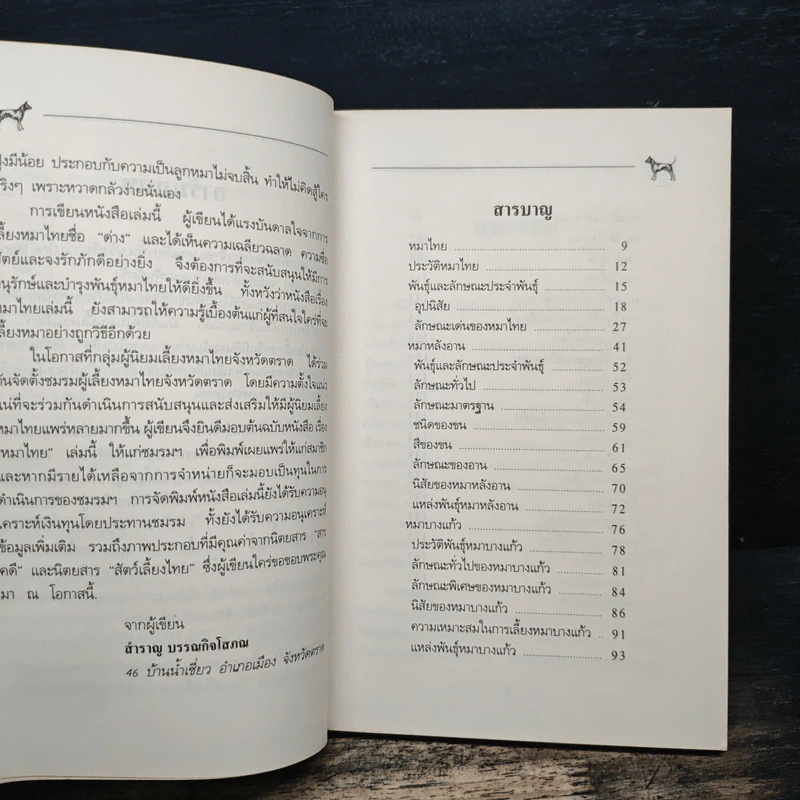 ฝูงมีน้อย ประกอบกับความเป็นลูกหมาไม่จบสิ้น ทำให้ไม่คิดสู้ใคร
จริงๆ เพราะหวาดกลัวง่ายนั่นเอง
การเขียนหนังสือเล่มนี้ ผู้เขียนได้แรงบันดาลใจจากการ
เลี้ยงหมาไทยชื่อ "ด่าง" และได้เห็นความเฉลียวฉลาด ความซื่อ
สัตย์และจงรักภักดีอย่างยิ่ง จึงต้องการที่จะสนับสนุนให้มีการ
อนุรักษ์และบำรุงพันธุ์หมาไทยให้ดียิ่งขึ้น ทั้งหวังว่าหนังสือเรื่อง
หมาไทยเล่มนี้ ยังสามารถให้ความรู้เบื้องต้นแก่ผู้ที่สนใจใคร่ที่จะ
เลี้ยงหมาอย่างถูกวิธีอีกด้วย
ในโอกาสที่กลุ่มผู้นิยมเลี้ยงหมาไทยจังหวัดตราด ได้ร่วม
กันจัดตั้งชมรมผู้เลี้ยงหมาไทยจังหวัดตราด โดยมีความตั้งใจแน่ว
แน่ที่จะร่วมกันดำเนินการสนับสนุนและส่งเสริมให้มีผู้นิยมเลี้ยง
หมาไทยแพร่หลายมากขึ้น ผู้เขียนจึงยินดีมอบต้นฉบับหนังสือเรื่อง
"หมาไทย" เล่มนี้ ให้แก่ชมรมฯ เพื่อพิมพ์เผยแพร่ให้แก่สมาชิก
และหากมีรายได้เหลือจากการจำหน่ายก็จะมอบเป็นทุนในการ
ดำเนินการของชมรมฯ การจัดพิมพ์หนังสือเล่มนี้ยังได้รับความอนุ
เคราะห์เงินทุนโดยประทานชมรม ทั้งยังได้รับความอนุเคราะห์
ข้อมูลเพิ่มเติม รวมถึงภาพประกอบที่มีคุณค่าจากนิตยสาร "สาร
คดี" และนิตยสาร "สัตว์เลี้ยงไทย" ซึ่งผู้เขียนใคร่ขอขอบพระคุณ
มา ณ โอกาสนี้.
จากผู้เขียน
สำราญ บรรณกิจโสภณ
46 บ้านน้ำเชี่ยว อำเภอเมือง จังหวัดตราด
สารบาญ
หมาไทย 9
ประวัติหมาไทย 12
พันธุ์และลักษณะประจำพันธุ์ 15
อุปนิสัย 18
ลักษณะเด่นของหมาไทย 27
หมาหลังอาน 41
พันธุ์และลักษณะประจำพันธุ์ 52
ลักษณะทั่วไป 53
ลักษณะมาตรฐาน 54
ชนิดของขน 59
สีของขน 61
ลักษณะของอาน 65
นิสัยของหมาหลังอาน 70
แหล่งพันธุ์หมาหลังอาน 72
หมาบางแก้ว 76
ประวัติพันธุ์หมาบางแก้ว 78
ลักษณะทั่วไปของหมาบางแก้ว 81
ลักษณะพิเศษของหมาบางแก้ว 84
นิสัยของหมาบางแก้ว 86
ความเหมาะสมในการเลี้ยงหมาบางแก้ว 91
แหล่งพันธุ์หมาบางแก้ว 93